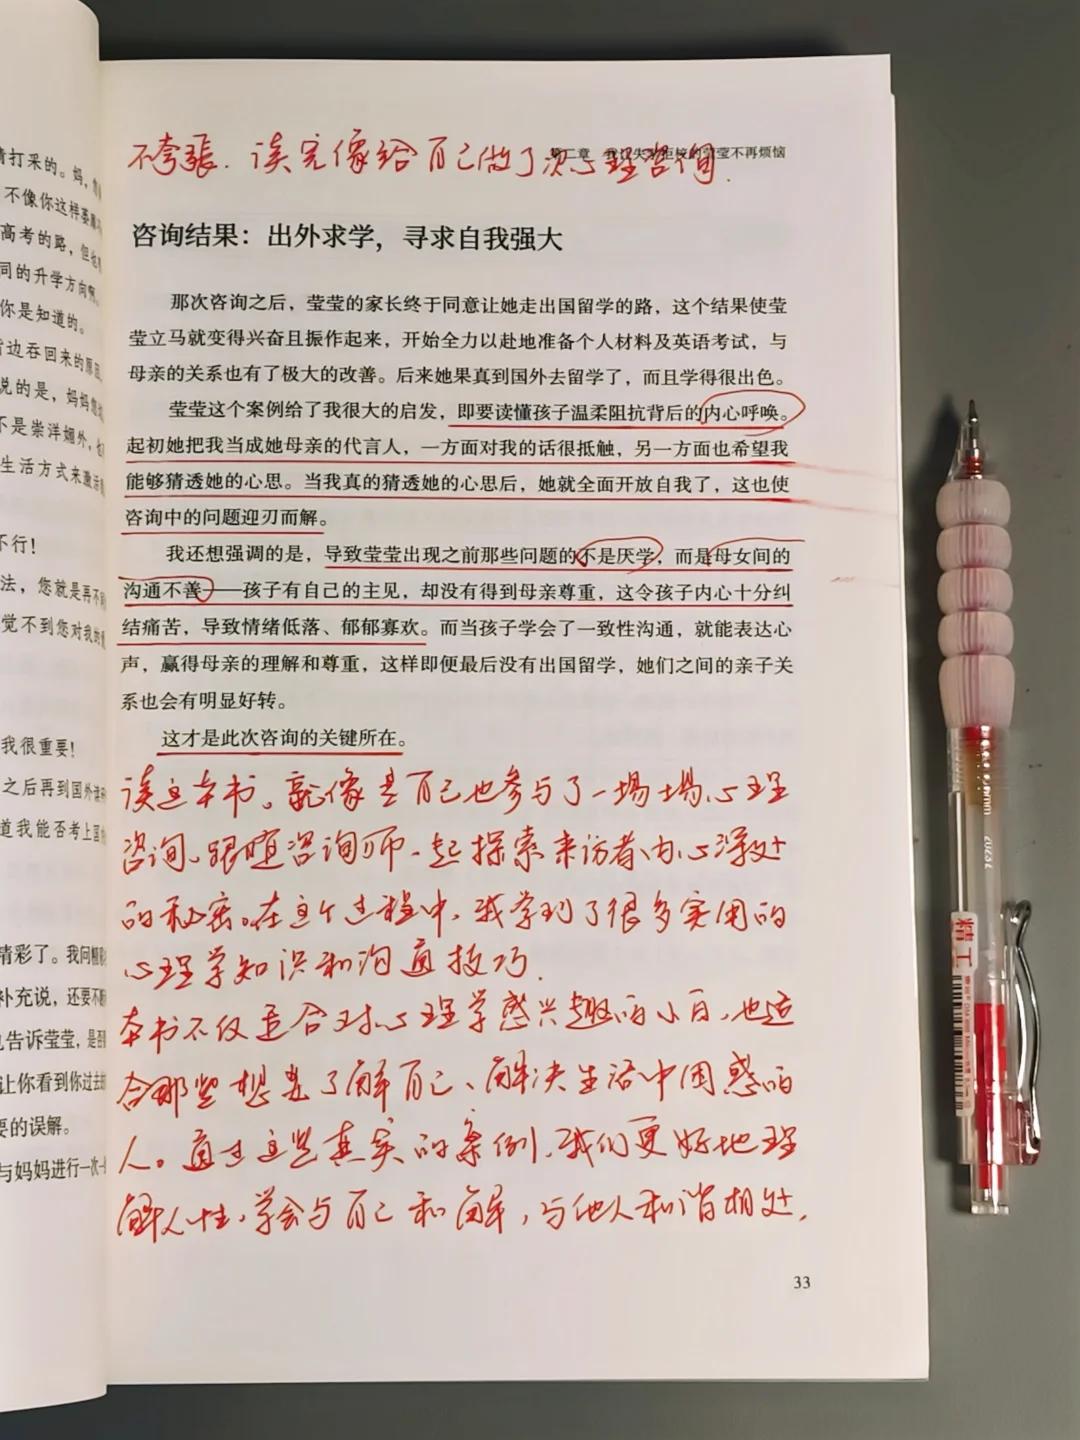 青打采的。妈,
不像你这样萎靡
高考的路,但也
同的升学方向啊。
你是知道的。
背边吞回来的原因,
说的是,妈妈您
不是崇洋媚外,也
生活方式来激活
不行!
法,您就是再不
觉不到您对我的
我很重要!
之后再到国外读
道我能否考上国
精彩了。我问
补充说,还要不断
告诉莹莹,是否
让你看到你过去的
要的误解。
与妈妈进行一次一
不夸張.读完像给自己做了次心理咨询.
第二章 我议失 拒接的莹莹不再烦恼
咨询结果:出外求学,寻求自我强大
那次咨询之后,莹莹的家长终于同意让她走出国留学的路,这个结果使莹
莹立马就变得兴奋且振作起来,开始全力以赴地准备个人材料及英语考试,与
母亲的关系也有了极大的改善。后来她果真到国外去留学了,而且学得很出色。
莹莹这个案例给了我很大的启发,即要读懂孩子温柔阻抗背后的内心呼唤。
起初她把我当成她母亲的代言人,一方面对我的话很抵触,另一方面也希望我
能够猜透她的心思。当我真的猜透她的心思后,她就全面开放自我了,这也使
咨询中的问题迎刃而解。
我还想强调的是,导致莹莹出现之前那些问题的不是厌学,而是母女间的
沟通不善——孩子有自己的主见,却没有得到母亲尊重,这令孩子内心十分纠
结痛苦,导致情绪低落、郁郁寡欢。而当孩子学会了一致性沟通,就能表达心
声,赢得母亲的理解和尊重,这样即便最后没有出国留学,她们之间的亲子关
系也会有明显好转。
这才是此次咨询的关键所在。
读这本书。就像是自己也参与了一場場心理
咨询、跟随咨询师一起探索来访者内心深处
的秘密。在这个过程中,我学到了很多实用的
心理学知识和沟通技巧.
本书不仅适合对心理学感兴趣的小白,也适
合那些想要了解自己、解决生活中困惑的
人。通过这些真实的案例,我们更好地理
解人性,学会与自己和解,与他人和谐相处,
33
精工